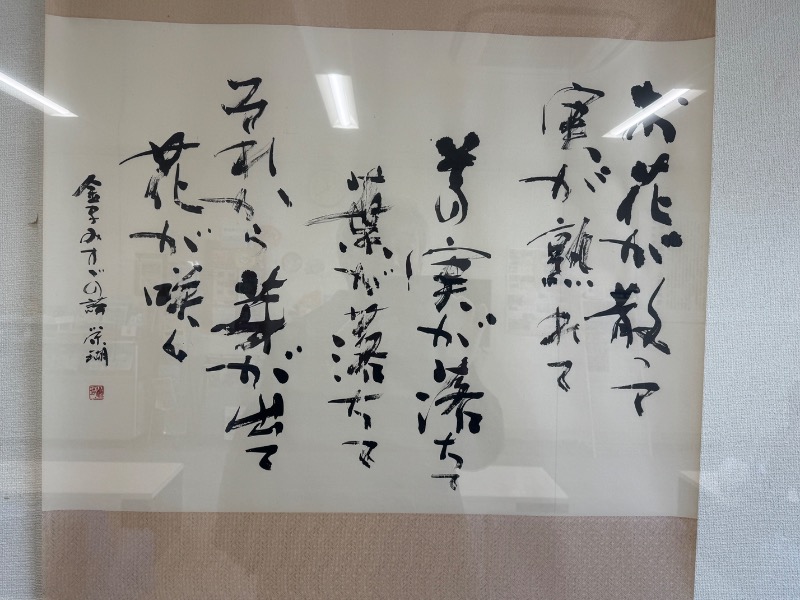 お花が散って
実が熟れて
その実が落ちて
葉が落ちて
それから芽が出て
花が咲く
金子みすゞの詩